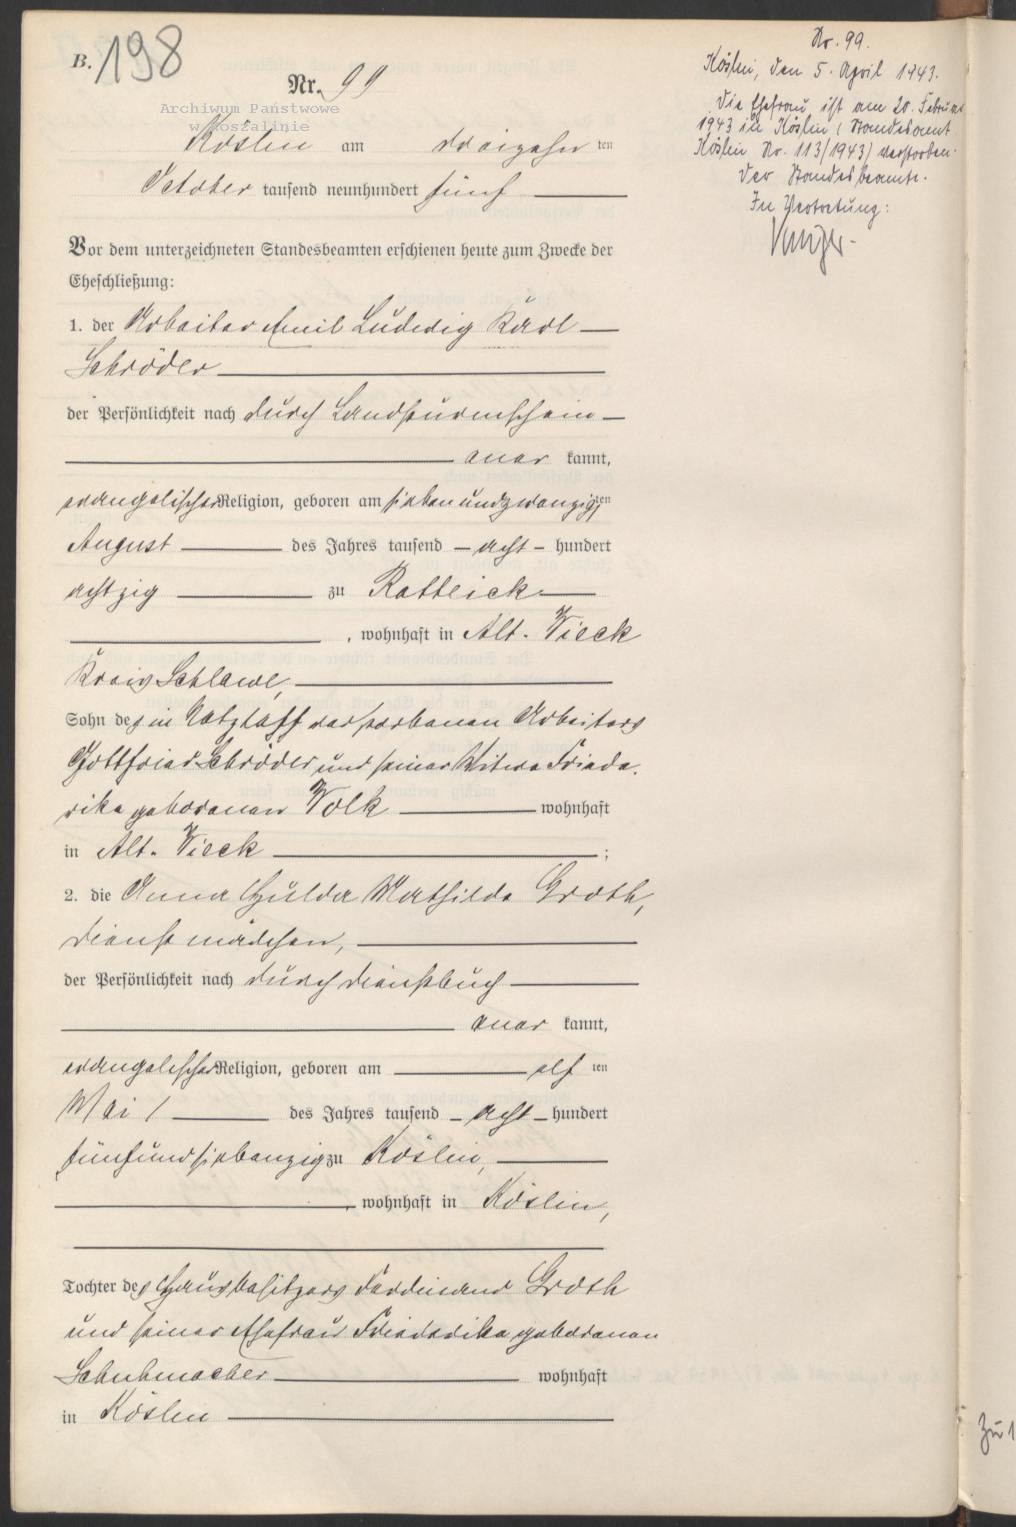 B. 198
Nr. 99
Archiwum Państwowe
w Koszalinie
Köslin am dreizehn ten
October tausend neunhundert fünf
Vor dem unterzeichneten Standesbeamten erschienen heute zum Zwecke der
Eheschließung:
1. der Arbeiter Emil Ludwig Karl
Schröder
der Persönlichkeit nach durch Landsturmschein
aner kannt,
evangelischer Religion, geboren am siebenundzwanzigsten
August des Jahres tausend acht hundert
achtzig zu Ratteick
, wohnhaft in Alt-Wieck
Kreis Schlawe,
Sohn des in verstorbenen Arbeiters
Gottfried Schröder und seiner Witwe Friede-
rike geborenen Volk wohnhaft
in Alt-Wieck ;
2. die Anna Hulda Mathilde Groth,
Dienstmädchen,
der Persönlichkeit nach durch Dienstbuch
aner kannt,
evangelischer Religion, geboren am elf ten
Mai des Jahres tausend acht hundert
fünfundsiebenzig zu Köslin,
, wohnhaft in Köslin,
Tochter des Hausbesitzers Ferdinand Groth
und seiner Ehefrau Friederike geborenen
Schuhmacher wohnhaft
in Köslin
Nr. 99.
Köslin, den 5. April 1943.
Die Ehefrau ist am 20. Februar
1943 in Köslin (Standesamt
Köslin Nr. 113/1943) verstorben.
Der Standesbeamte.
In Vertretung:
Zu 1